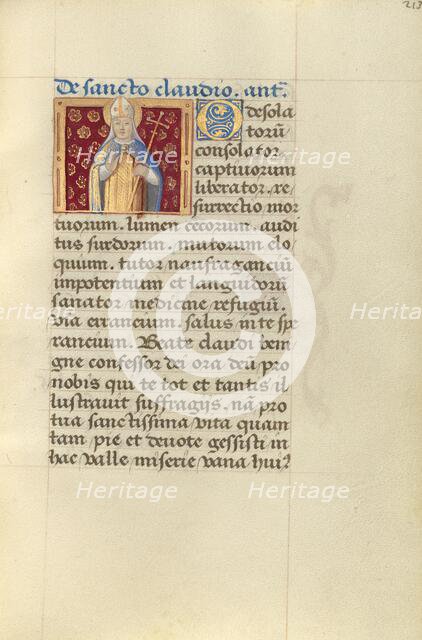 213
De sancto claudio. ant̄.
O desola
torū
consolator
captiuorum
liberator. re
surrectio mor
tuorum. lumen cecorum. audi
tus surdorum. mutorum elo
quium. tutor naufragancium
impotentium et languidorū
sanator medicine refugiū.
via erranciū. salus in te spe
rancium. Beate claudi beni
gne confessor dei ora deū pro
nobis qui te tot et tantis il
lustrauit suffragijs. nā pro
tua sanctissima vita quam
tam pie et deuote gessisti in
hac valle miserie vana hui9
Heritage
Heritage
Heritage
Heritage
Heritage
Heritage
Heritage
Heritage